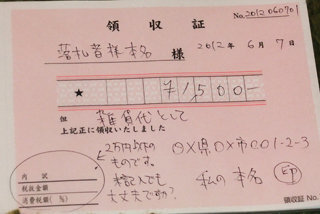 領収証
No. 2012060701
落札者様本名 様 2012年 6月 7日
★ ¥1,500-
但 雑貨代として
上記正に領収いたしました
2万円以下の
ものです。
○×県○×市○○1-2-3
内訳
税抜金額
消費税額(%)
捨印でも
丈夫ですか?
私の本名 印
領収証 No.